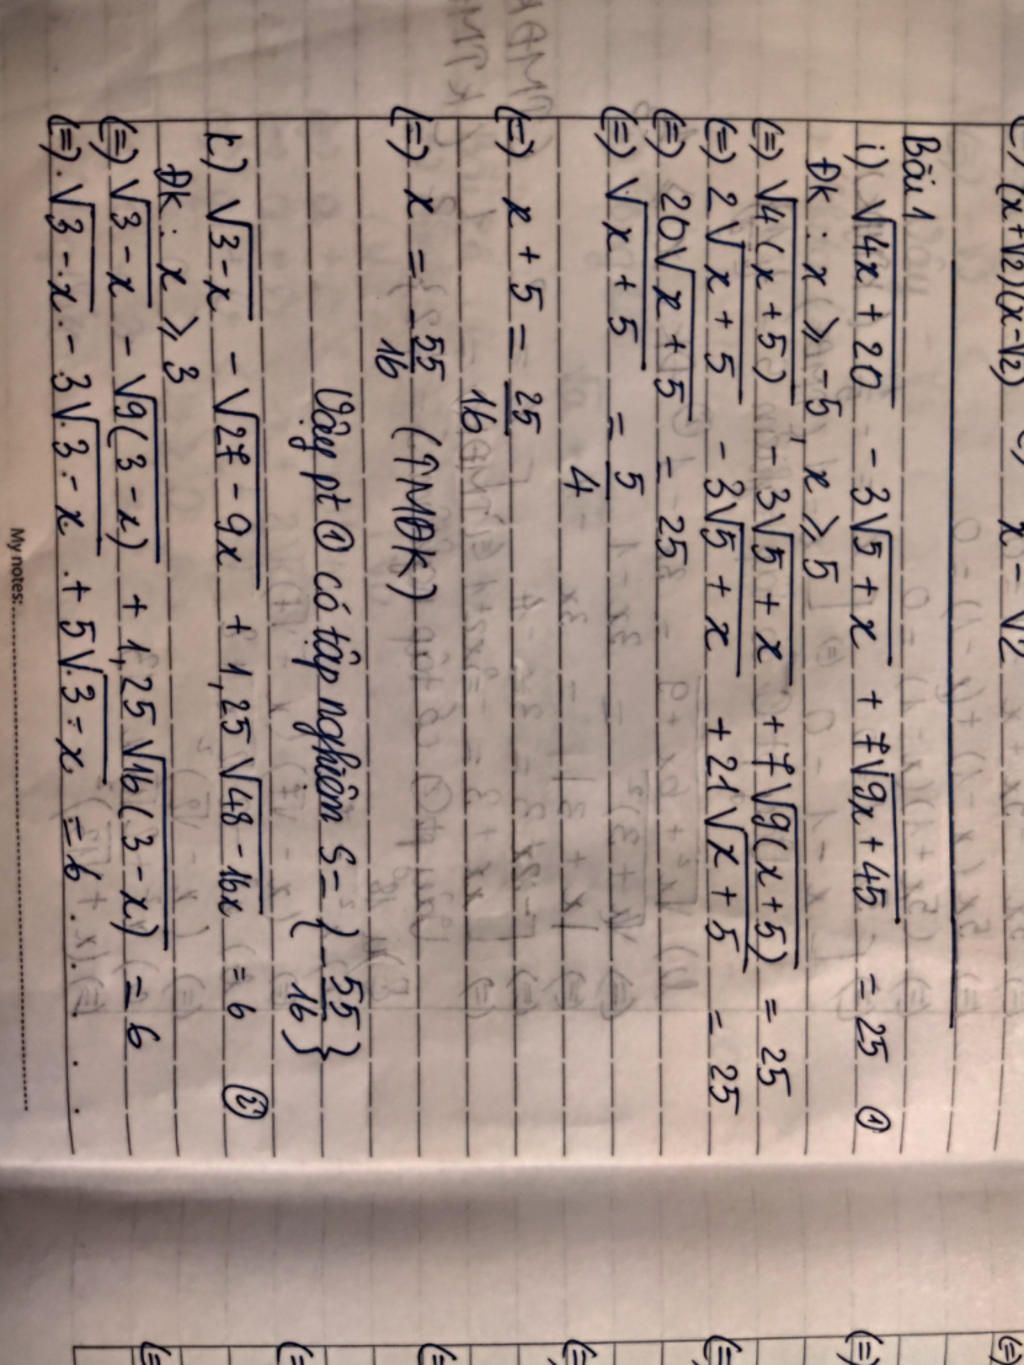 (x+√2)(x-√2) x = √2
Bài 1
i) √4x+20 - 3√5+x + 7√9x+45 = 25 ①
Đk: x ≥ -5, x ≥ 5
(=) √4(x+5) - 3√5+x + 7√9(x+5) = 25
(=) 2√x+5 - 3√5+x + 21√x+5 = 25
(=) 20√x+5 = 25
(=) √x+5 = 5/4
(=) x+5 = 25/16
(=) x = -55/16 (TMĐK)
Vậy pt ① có tập nghiệm S = {-55/16}
k) √3-x - √27-9x + 1,25√48-16x = 6 ②
Đk: x ≥ 3
(=) √3-x - √9(3-x) + 1,25√16(3-x) = 6
(=) √3-x - 3√3-x + 5√3-x = 6
My notes: